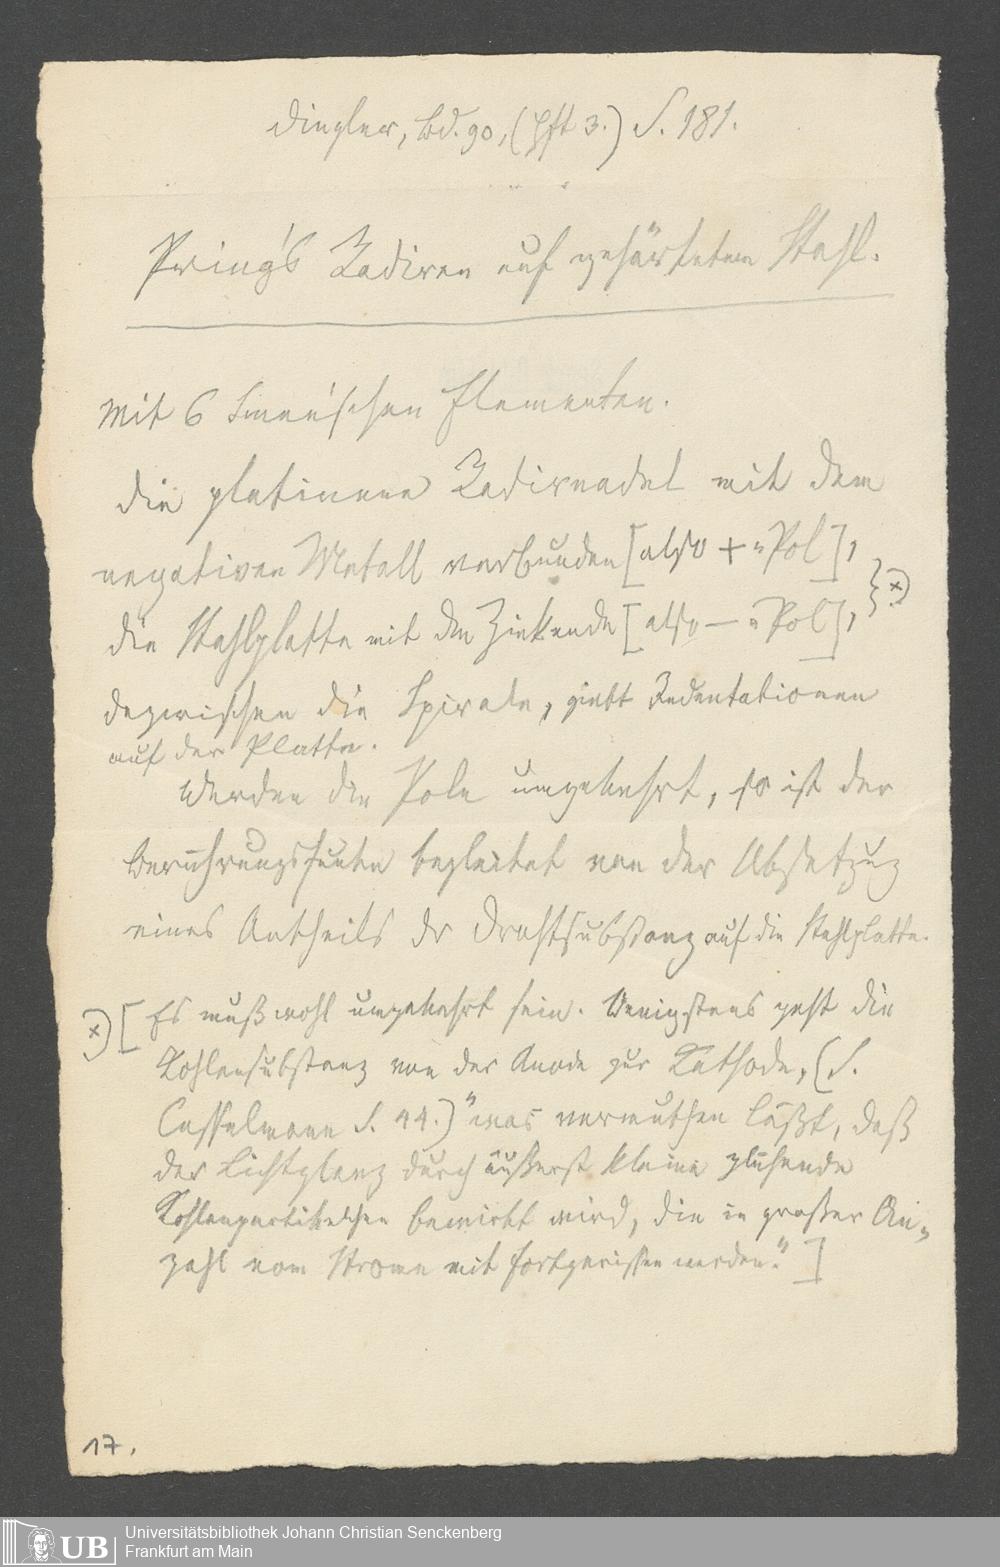 Dingler, Bd. 90, (Hft 3.) S. 181.
Pring's Radiren auf gehärtetem Stahl.
Mit 6 Smee'schen Elementen.
Die platinene Radirnadel mit dem
negativen Metall verbunden [also + "Pol],
die Stahlplatte mit dem Zinkende [also — "Pol], } x)
dazwischen die Spirale, giebt Indentationen
auf der Platte.
Werden die Pole umgekehrt, so ist der
Berührungsfunken begleitet von der Absetzung
eines Antheils der Drahtsubstanz auf die Stahlplatte.
x) [Es muß wohl umgekehrt sein. Wenigstens geht die
Kohlensubstanz von der Anode zur Kathode, (S.
Casselmann S. 44.) "was vermuthen läßt, daß
der Lichtglanz durch äußerst kleine glühende
Kohlenpartikelchen bewirkt wird, die in großer An-
zahl vom Strome mit fortgerissen werden." ]
17.
UB
Universitätsbibliothek Johann Christian Senckenberg
Frankfurt am Main